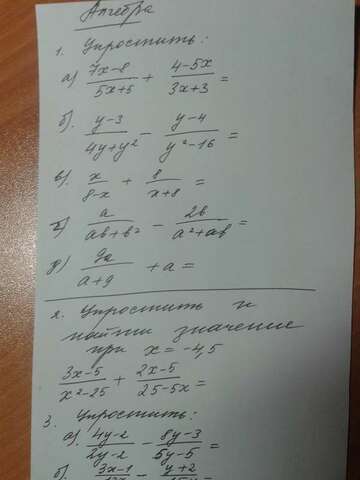 Алгебра
1. Упростить:
а) (7x-8)/(5x+5) + (4-5x)/(3x+3) =
б). (y-3)/(4y+y²) - (y-4)/(y²-16) =
в). x/(8-x) + 8/(x+8) =
г) a/(ab+b²) - 2b/(a²+ab) =
д) 9a/(a+9) + a =
2. Упростить и
найти значение
при x = -4,5
(3x-5)/(x²-25) + (2x-5)/(25-5x) =
3. Упростить:
а). (4y-2)/(2y-2) - (8y-3)/(5y-5) =
б) 3x-1 - y+2 =